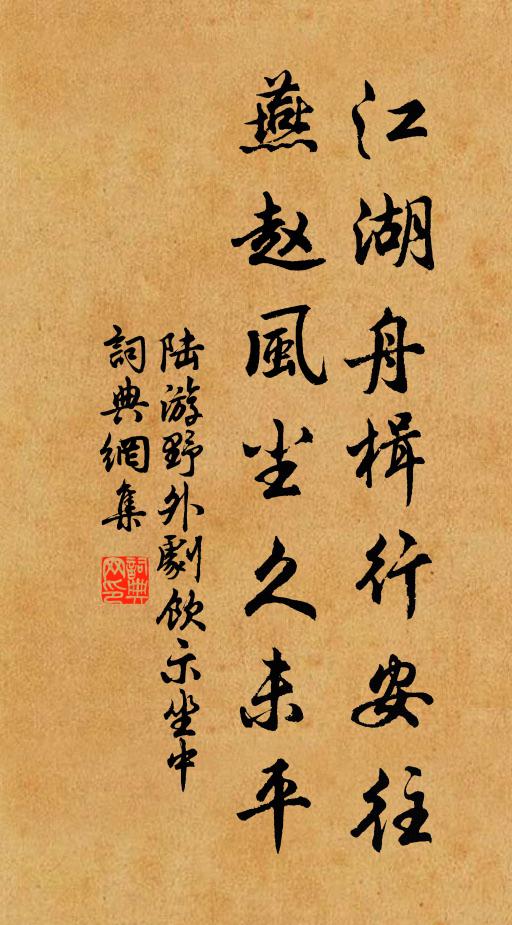 江湖舟楫行安往
燕赵風尘久未平
陆游野外劇飲示坐中
詞典網集
詞典
网印